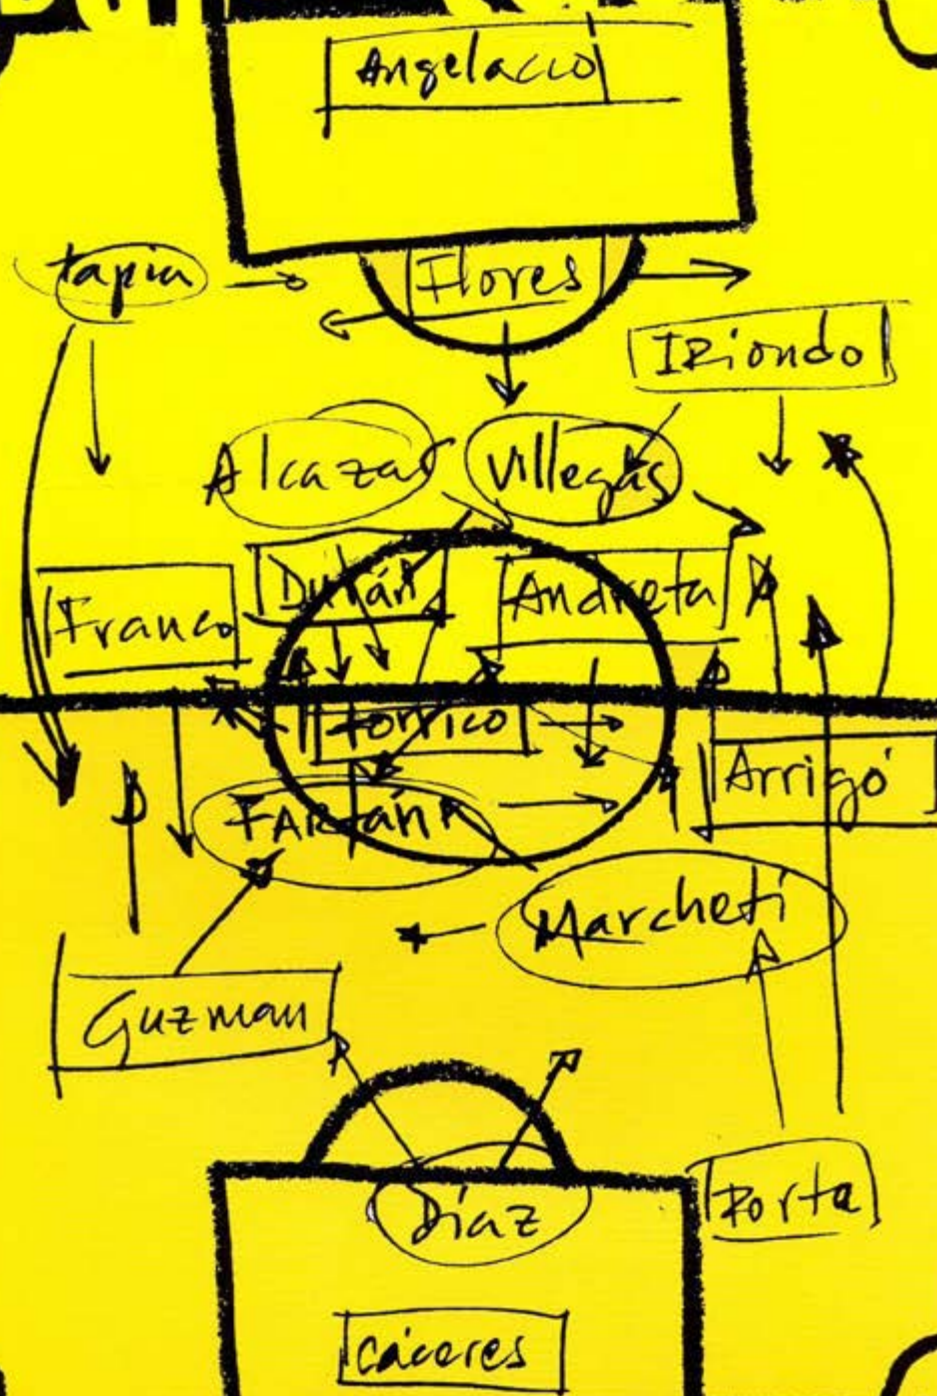 Angelaccio
tapia
Flores
IRiondo
Alcazar
Villegas
Durán
Andreta
Franco
torrico
Arrigó
FARfán
Marcheti
Guzman
Díaz
Porta
Cáceres